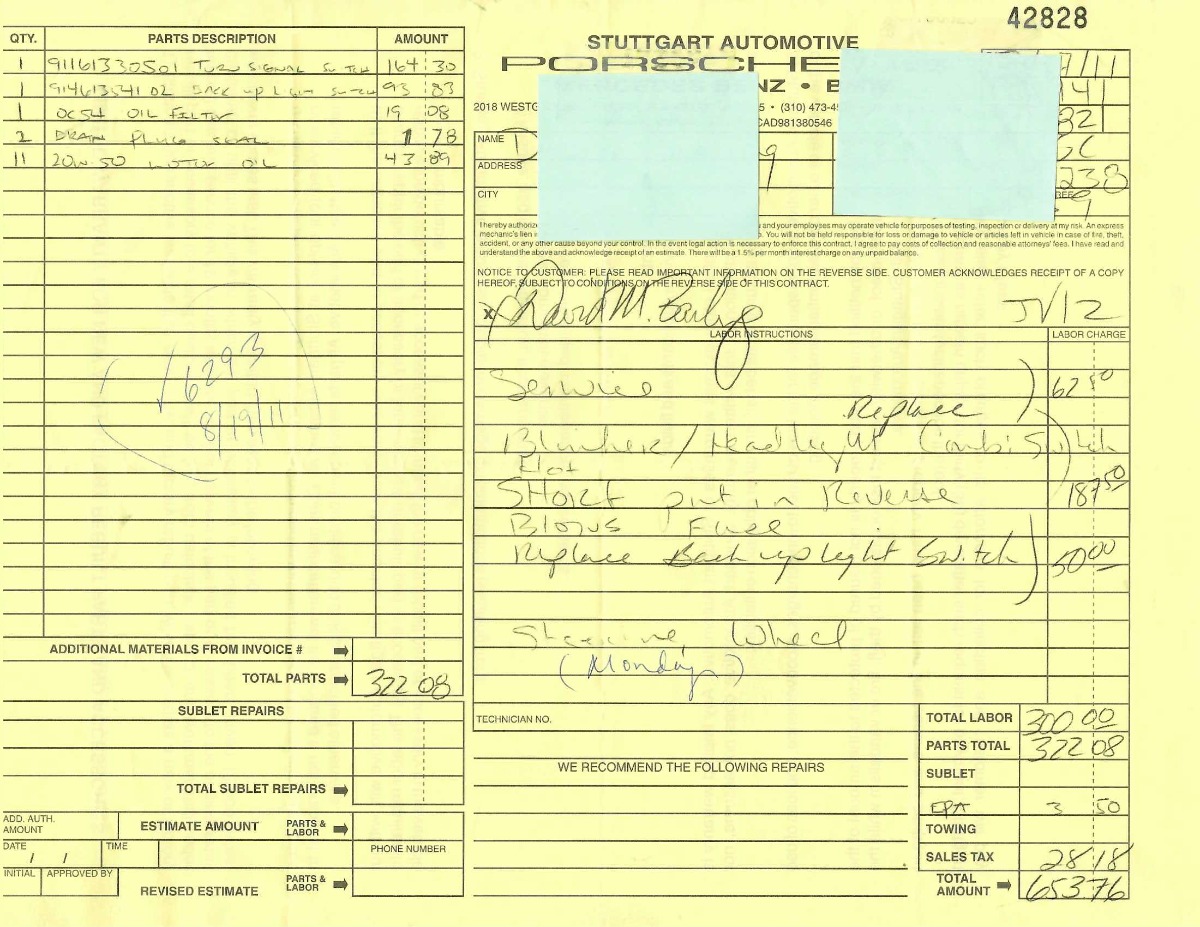 42828
QTY. PARTS DESCRIPTION AMOUNT
1 91161330501 TURN SIGNAL SWTCH 164 30
1 91461354102 BACK UP LIGHT SWTCH 93 83
1 OC54 OIL FILTER 19 08
2 DRAIN PLUG SEAL 1 78
11 20W-50 MOTOR OIL 43 09
✓ 6293
8/19/11
ADDITIONAL MATERIALS FROM INVOICE #
TOTAL PARTS 322 08
SUBLET REPAIRS
TOTAL SUBLET REPAIRS
ADD. AUTH. AMOUNT
ESTIMATE AMOUNT PARTS & LABOR
DATE / / TIME
PHONE NUMBER
INITIAL APPROVED BY
REVISED ESTIMATE PARTS & LABOR
STUTTGART AUTOMOTIVE
PORSCHE
NZ • B
/11
141
2018 WESTG 5 • (310) 473-4
CAD981380546
NAME
ADDRESS
238
CITY
I hereby authorize and your employees may operate vehicle for purposes of testing, inspection or delivery at my risk. An express
mechanic's lien i of. You will not be held responsible for loss or damage to vehicle or articles left in vehicle in case of fire, theft,
accident, or any other cause beyond your control. In the event legal action is necessary to enforce this contract, I agree to pay costs of collection and reasonable attorneys' fees. I have read and
understand the above and acknowledge receipt of an estimate. There will be a 1.5% per month interest charge on any unpaid balance.
NOTICE TO CUSTOMER: PLEASE READ IMPORTANT INFORMATION ON THE REVERSE SIDE. CUSTOMER ACKNOWLEDGES RECEIPT OF A COPY
HEREOF, SUBJECT TO CONDITIONS ON THE REVERSE SIDE OF THIS CONTRACT.
X David M.
LABOR INSTRUCTIONS LABOR CHARGE
Service 62 50
Replace
Blinker/Headlight Combi Switch
SHORT put in Reverse 187 50
Blows Fuse
Replace Back up light Switch 50 00
Steering Wheel
(Monday)
TECHNICIAN NO.
WE RECOMMEND THE FOLLOWING REPAIRS
TOTAL LABOR 300 00
PARTS TOTAL 322 08
SUBLET
EPA 3 50
TOWING
SALES TAX 28 18
TOTAL AMOUNT 653.76